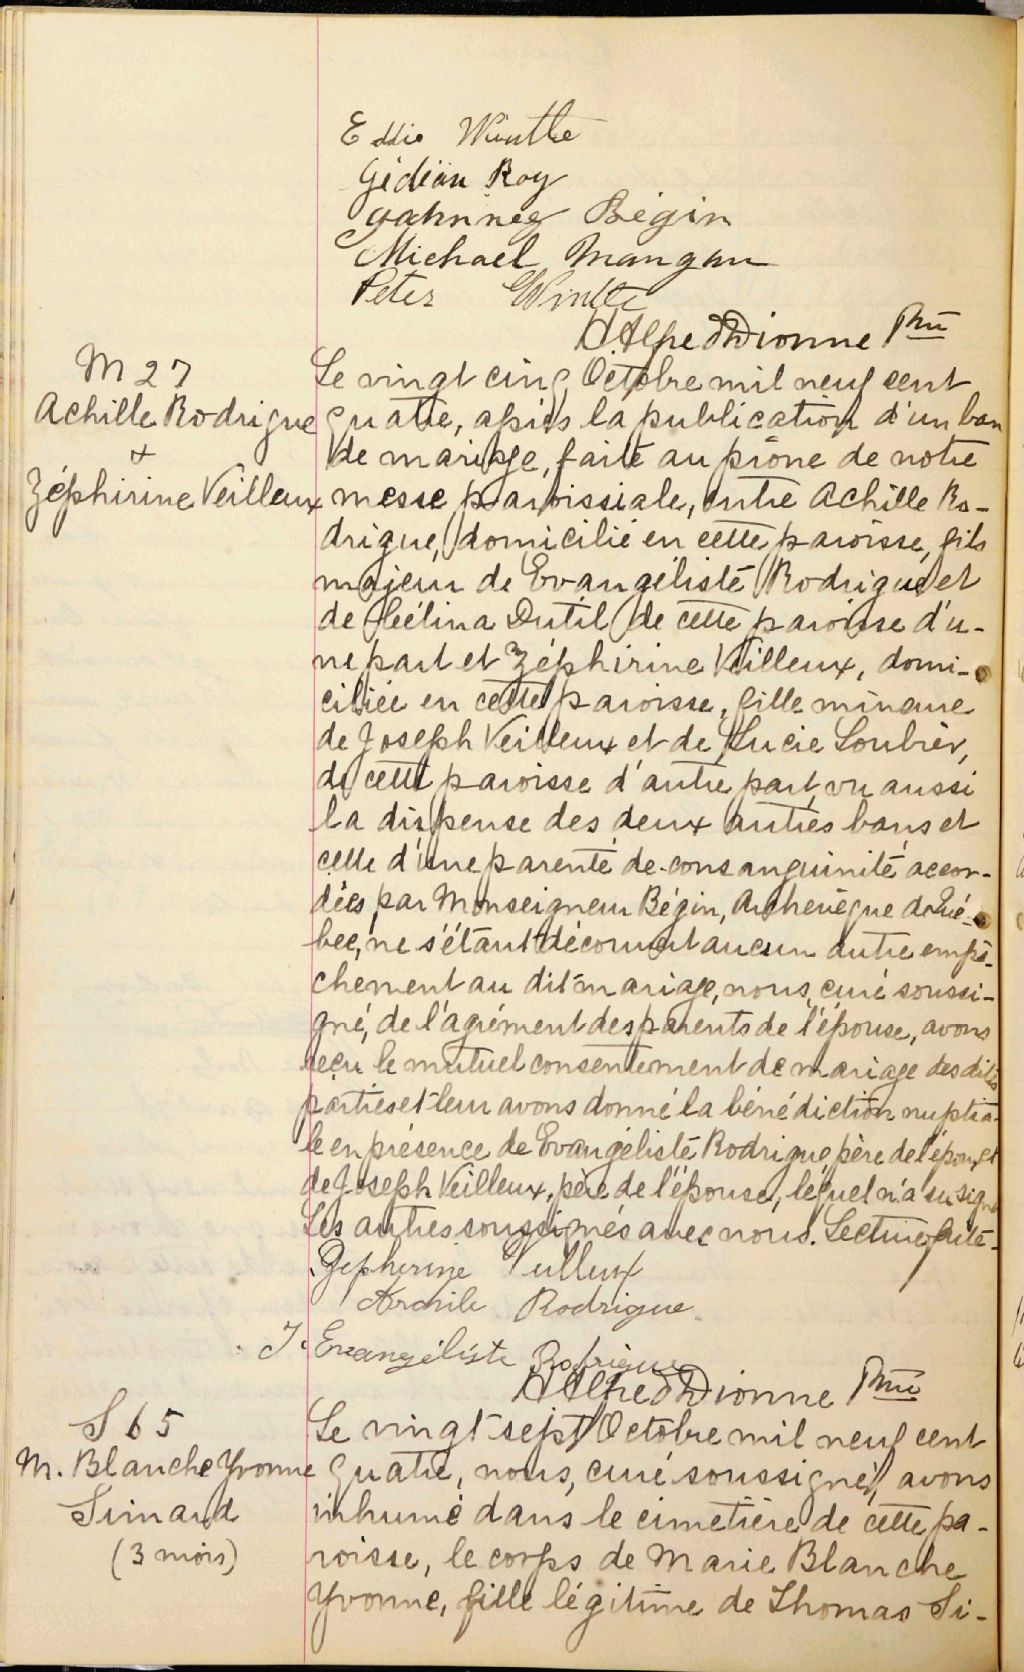 Eddie
Gédéon Roy
Bégin
Michael Mangan
Peter
H Alfred Dionne Ptre
M 27
Achille Rodrigue
+
Zéphirine Veilleux
Le vingt cinq Octobre mil neuf cent
quatre, après la publication d'un ban
de mariage, faite au prône de notre
messe paroissiale, entre Achille Ro-
drigue, domicilié en cette paroisse, fils
majeur de Evangéliste Rodrigue et
de Célina Dutil de cette paroisse d'u-
ne part et Zéphirine Veilleux, domi-
ciliée en cette paroisse, fille mineure
de Joseph Veilleux et de Lucie Loubier,
de cette paroisse d'autre part, vu aussi
la dispense des deux autres bans et
celle d'une parenté de consanguinité accor-
dées par Monseigneur Bégin, Archevêque de Qué-
bec, ne s'étant découvert aucun autre empê-
chement au dit mariage, nous, curé soussi-
gné, de l'agrément des parents de l'épouse, avons
reçu le mutuel consentement de mariage des dites
parties et leur avons donné la bénédiction nuptia-
le en présence de Evangéliste Rodrigue père de l'époux, et
de Joseph Veilleux, père de l'épouse, lequel n'a su signer
Les autres soussignés avec nous. Lecture faite.
Zepherine Veilleux
Archile Rodrigue
J. Evangéliste Rodrigue
H Alfred Dionne Ptre
S 65
M. Blanche Yvonne
Simard
(3 mois)
Le vingt-sept Octobre mil neuf cent
quatre, nous, curé soussigné, avons
inhumé dans le cimetière de cette pa-
roisse, le corps de Marie Blanche
Yvonne, fille légitime de Thomas Si-